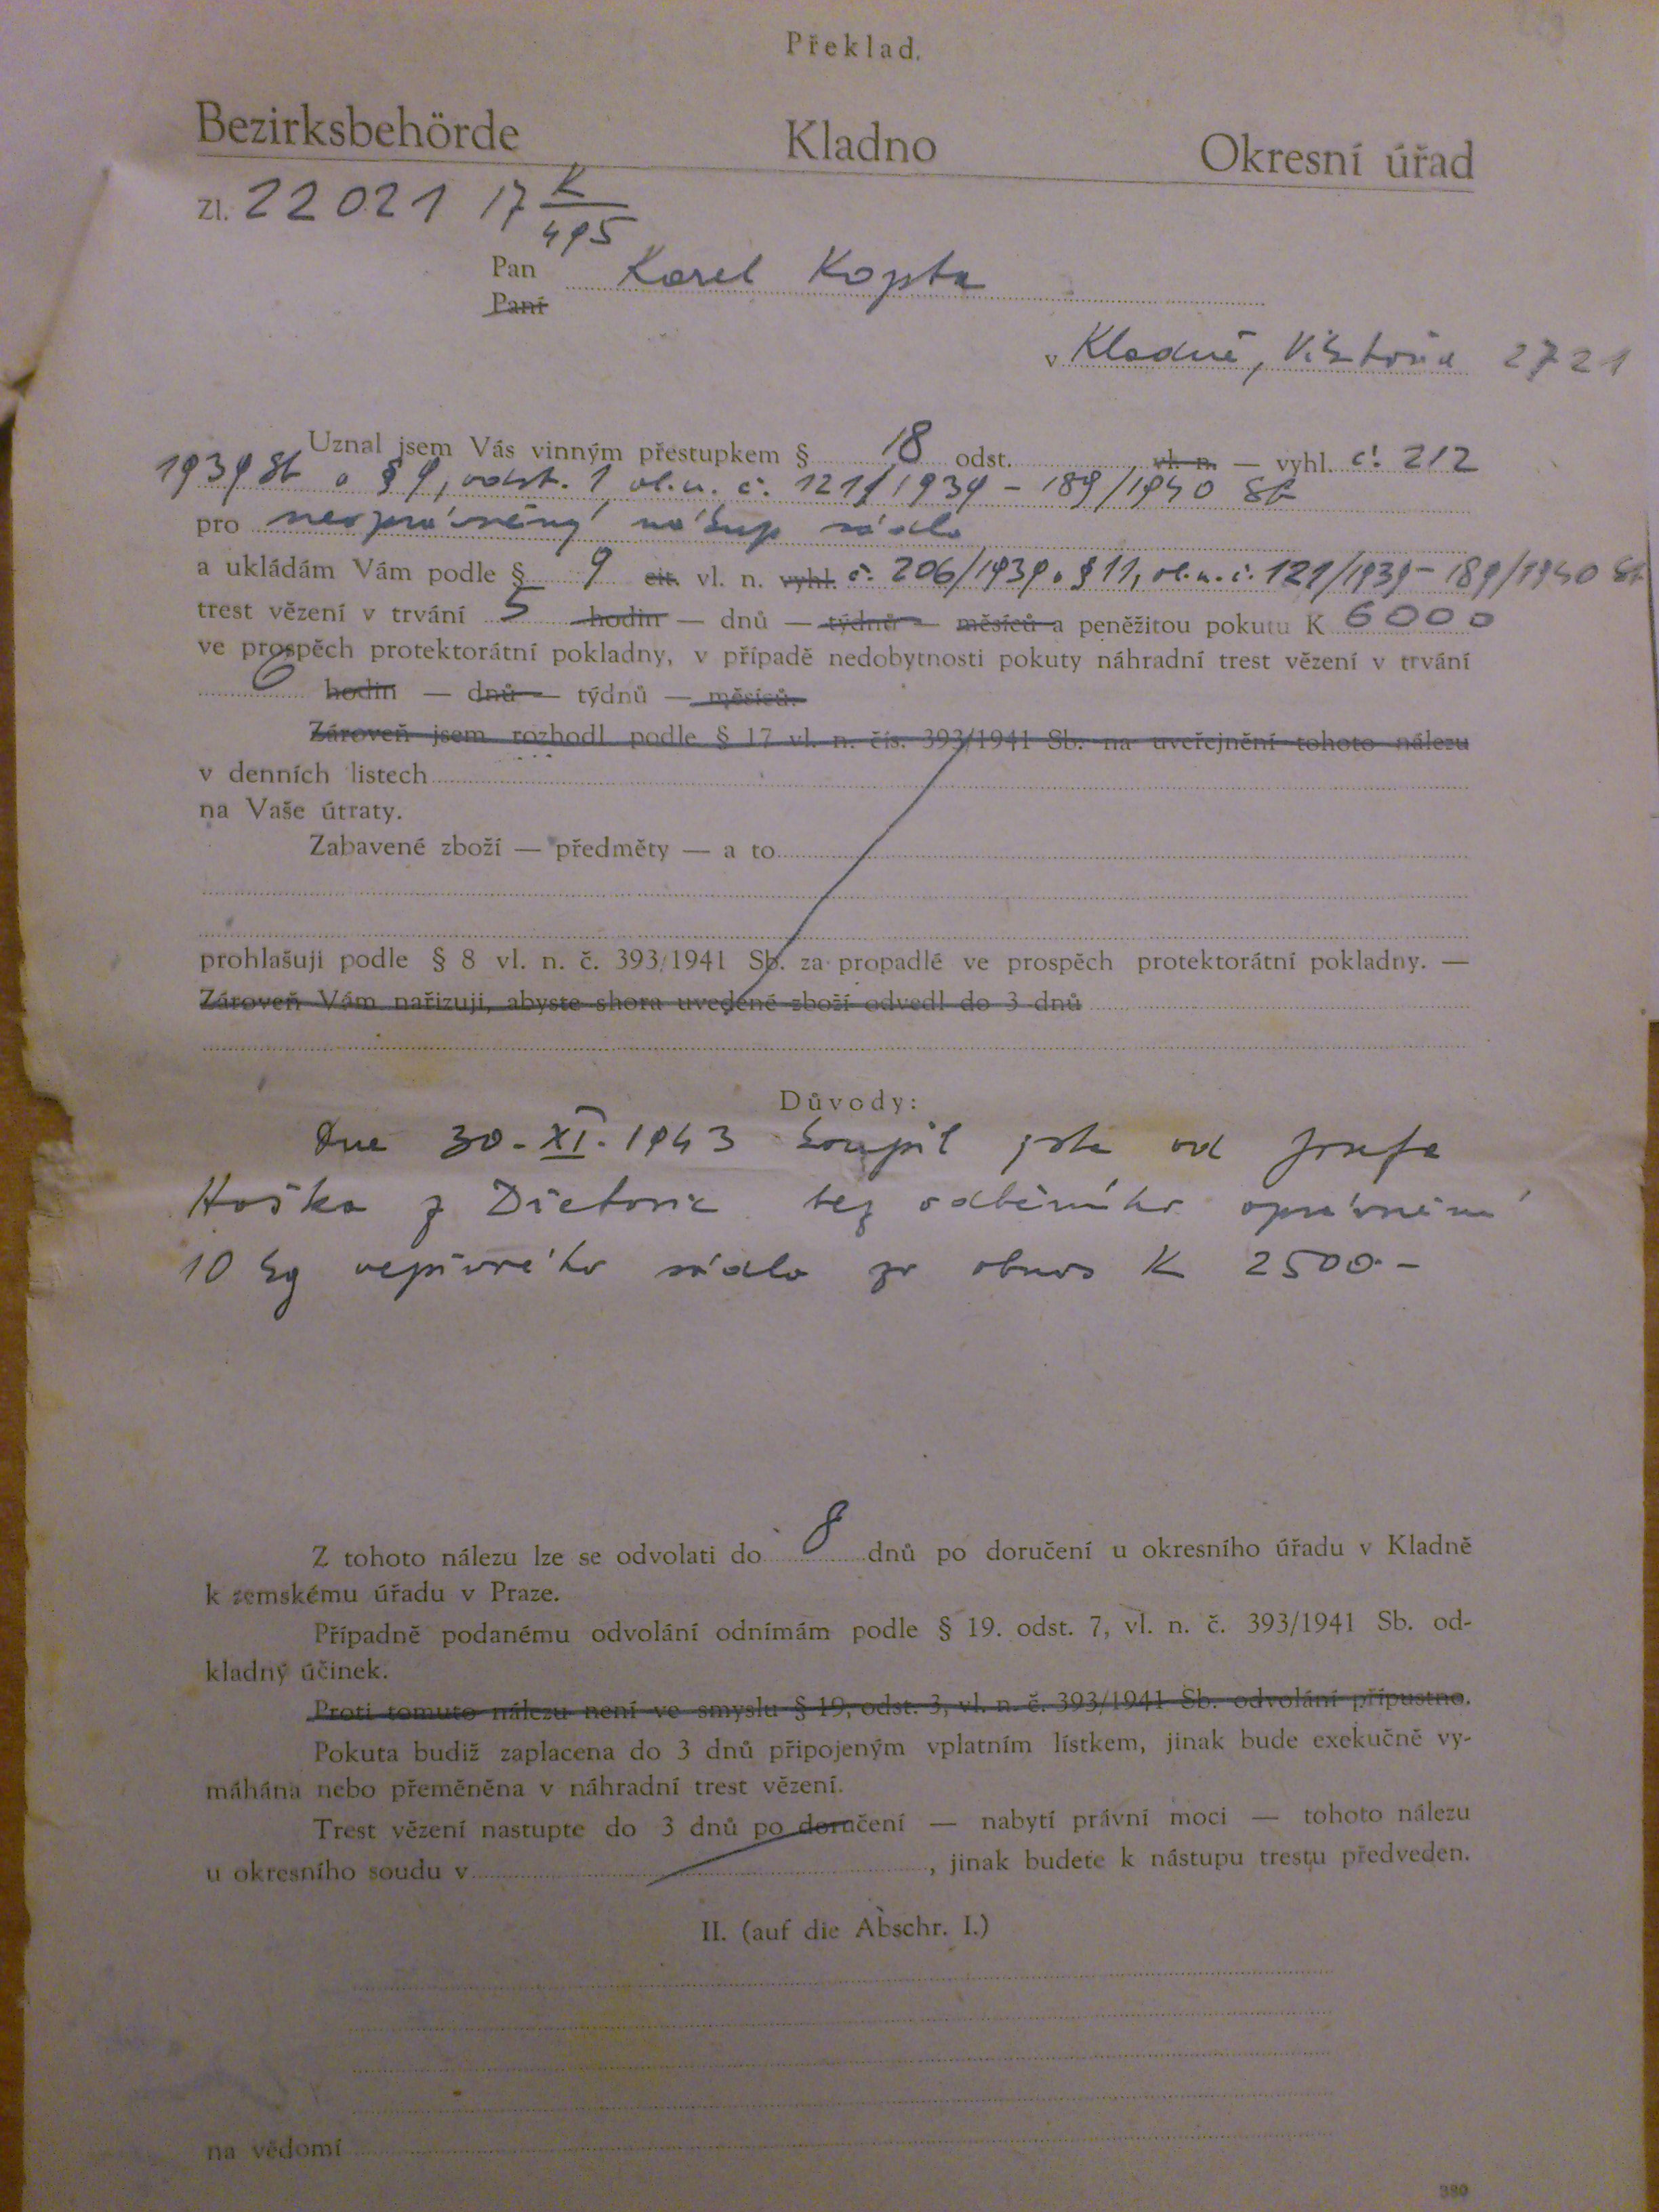 Překlad.
Bezirksbehörde Kladno Okresní úřad
Zl. 22021 17 K/495
Pan Karel Kopta
Paní
v Kladně, 2721
Uznal jsem Vás vinným přestupkem § 18 odst. vl. n. — vyhl. č. 212
1939 Sb a § 9, odst. 1 vl. n. č. 121/1939 - 189/1940 Sb
pro neoprávněný nákup sádla
a ukládám Vám podle § 9 cit. vl. n. vyhl. č. 206/1939 a § 11, vl. n. č. 121/1939 - 189/1940 Sb
trest vězení v trvání 5 hodin — dnů — týdnů — měsíců a peněžitou pokutu K 6000
ve prospěch protektorátní pokladny, v případě nedobytnosti pokuty náhradní trest vězení v trvání
6 hodin — dnů — týdnů — měsíců.
Zároveň jsem rozhodl podle § 17 vl. n. čís. 393/1941 Sb. na uveřejnění tohoto nálezu
v denních listech
na Vaše útraty.
Zabavené zboží — předměty — a to
prohlašuji podle § 8 vl. n. č. 393/1941 Sb. za propadlé ve prospěch protektorátní pokladny. —
Zároveň Vám nařizuji, abyste shora uvedené zboží odvedl do 3 dnů
Důvody:
Dne 30. XI. 1943 koupil jste od Josefa
Haška z bez odběrního oprávnění
10 kg vepřového sádla za obnos K 2500.-
Z tohoto nálezu lze se odvolati do 8 dnů po doručení u okresního úřadu v Kladně
k zemskému úřadu v Praze.
Případně podanému odvolání odnímám podle § 19. odst. 7, vl. n. č. 393/1941 Sb. od-
kladný účinek.
Proti tomuto nálezu není ve smyslu § 19, odst. 3, vl. n. č. 393/1941 Sb. odvolání přípustno.
Pokuta budiž zaplacena do 3 dnů připojeným vplatním lístkem, jinak bude exekučně vy-
máhána nebo přeměněna v náhradní trest vězení.
Trest vězení nastupte do 3 dnů po doručení — nabytí právní moci — tohoto nálezu
u okresního soudu v , jinak budete k nástupu trestu předveden.
II. (auf die Abschr. I.)
na vědomí
380